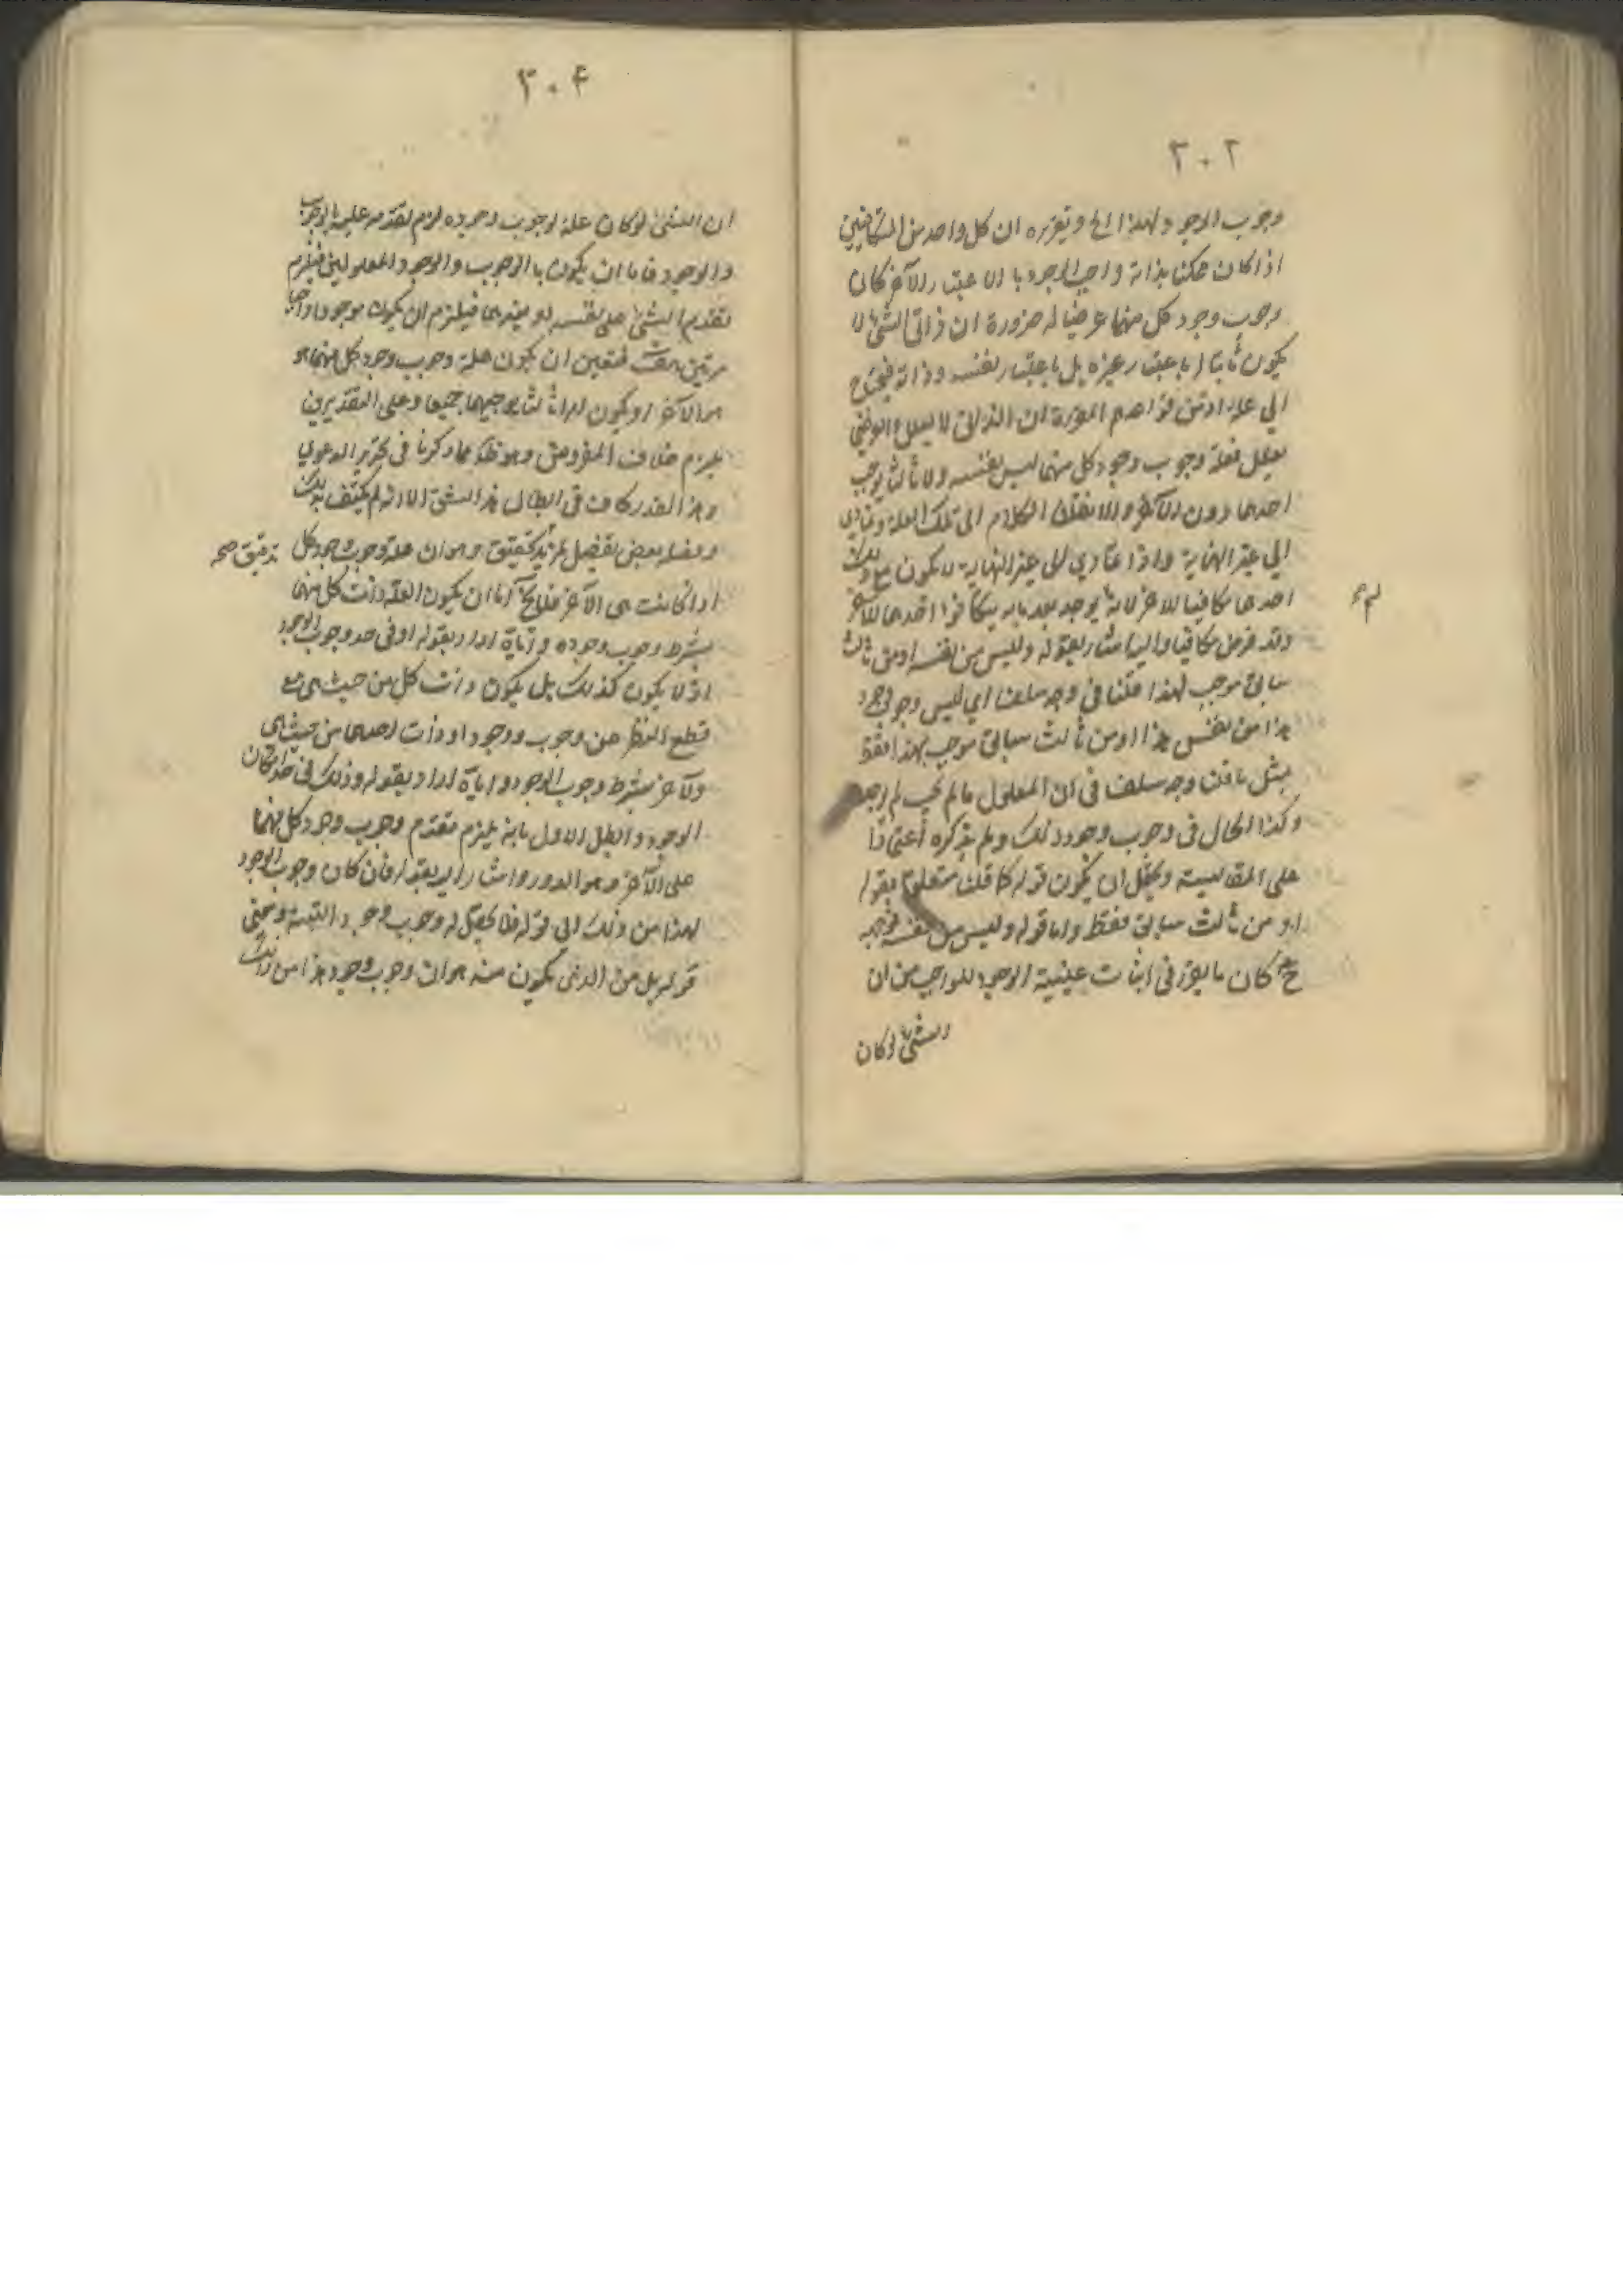 ٣٠٢
وجوب الوجود لهذا الخ وتقريره ان كل واحد من المتكافئين
اذا كان ممكنا بذاته واجب الوجود بالاعتبار الآخر كان
وجوب وجود كل منهما عرضيا له ضرورة ان ذاتي الشئ لا
يكون ثابتا له باعتبار غيره بل باعتبار نفسه وذاته فيحتاج
الى علة اذ من قواعدهم المقررة ان الذاتي لا يعلل والعرضي
يعلل فعلة وجوب وجود كل منهما ليس نفسه ولا ثالث يوجب
احدهما دون الآخر والا ننقل الكلام الى تلك العلة ويتمادى
الى غير النهاية واذا تمادي الى غير النهاية لا يكون مع ذلك
احدهما مكافيا للاخر لانه يوجد بعد ما به يتكافؤ احدهما للآخر
وقد فرض مكافيا واليه اشار بقوله وليس من نفسه او من ثالث
سابق موجب لهذا قلنا في وجه سلف اي ليس وجوب وجود
هذا من نفس هذا او من ثالث سابق موجب لهذا فقط
بمثل ما قلنا وجه سلف في ان المعلول ما لم يجب لم يوجد
وكذا الحال في وجوب وجود ذلك ولم يذكره اعتمادا
على المقايسة ويحتمل ان يكون قوله كما قلنا متعلقا بقوله
او من ثالث سابق فقط واما قوله وليس من نفسه فوجهه
ح كان ما يقرر في اثبات عينية الوجود للواجب من ان
الشئ لو كان
٣٠٤
ان الشئ لو كان علة لوجوب وجوده لزم تقدمه عليه بالوجوب
والوجود فاما ان يكون بالوجوب والوجود المعلولين فيلزم
تقدم الشئ على نفسه او بغيرهما فيلزم ان يكون موجودا واجبا
مرتين هف فتعين ان يكون علة وجوب وجود كل منهما هو
هو الآخر او يكون امرا ثالثا يوجبهما جميعا وعلى التقديرين
يلزم خلاف المفروض وهو ظ مما ذكرنا في تحرير الدعوي
وهذا القدر كاف في ابطال هذا الشق الا انه لم يكتف بذلك
وفصله بعض تفصيل لمزيد تحقيق وهو ان علة وجوب وجود كل
تدقيق صح
اذا كانت هي الآخر فلا يخ اما ان يكون العلة ذات كل منهما
بشرط وجوب وجوده واياه اراد بقوله او في حد وجوب الوجود
اذ لا يكون كذلك بل يكون ذات كل من حيث هي مع
قطع النظر عن وجوب ووجود او ذات احدهما من حيث هي
والآخر بشرط وجوب الوجود واياه اراد بقوله وذلك في حد امكان
الوجود وابطل الاول بانه يلزم تقدم وجوب وجود كل منهما
على الآخر وهو الدور واشار اليه بقوله فان كان وجوب الوجود
لهذا من ذلك الى قوله فلا يحصل له وجوب وجود البتة ومعنى
قوله بل من الذي يكون منه هو ان وجوب وجود هذا من ذلك